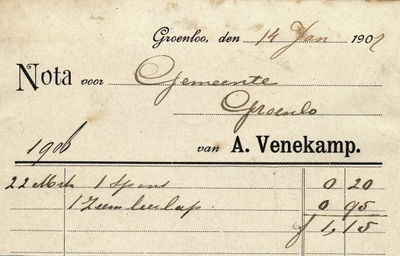 Groenloo, den 14 Jan 1907
Nota voor Gemeente
Groenlo
1906 van A. Venekamp.
22 Mrt 1 Spons 0 20
1 Zeemleerlap 0 95
f 1,15